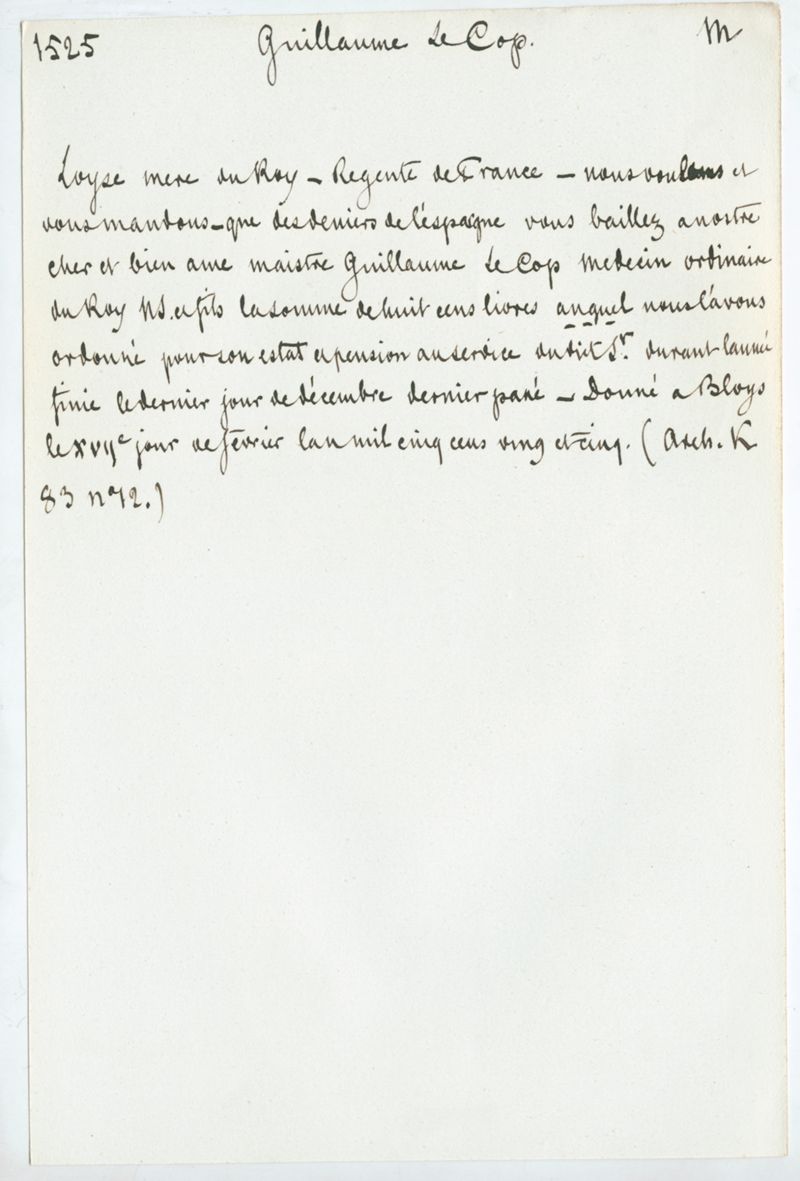 1525 Guillaume Le Cop. M
Loyse mere du Roy _ Regente de France _ nous voulons et
vous mandons _ que des deniers de l'éspagne vous baillez a nostre
cher et bien ame maistre Guillaume Le Cop medecin ordinaire
du Roy NS. et fils la somme de huit cens livres auquel nous l'avons
ordonné pour son estat et pension au service du dict Sr. durant lannée
finie le dernier jour de décembre dernier passé _ Donné a Bloys
le xvije jour de février lan mil cinq cens ving et cinq. (Arch. K
83 no 12.)